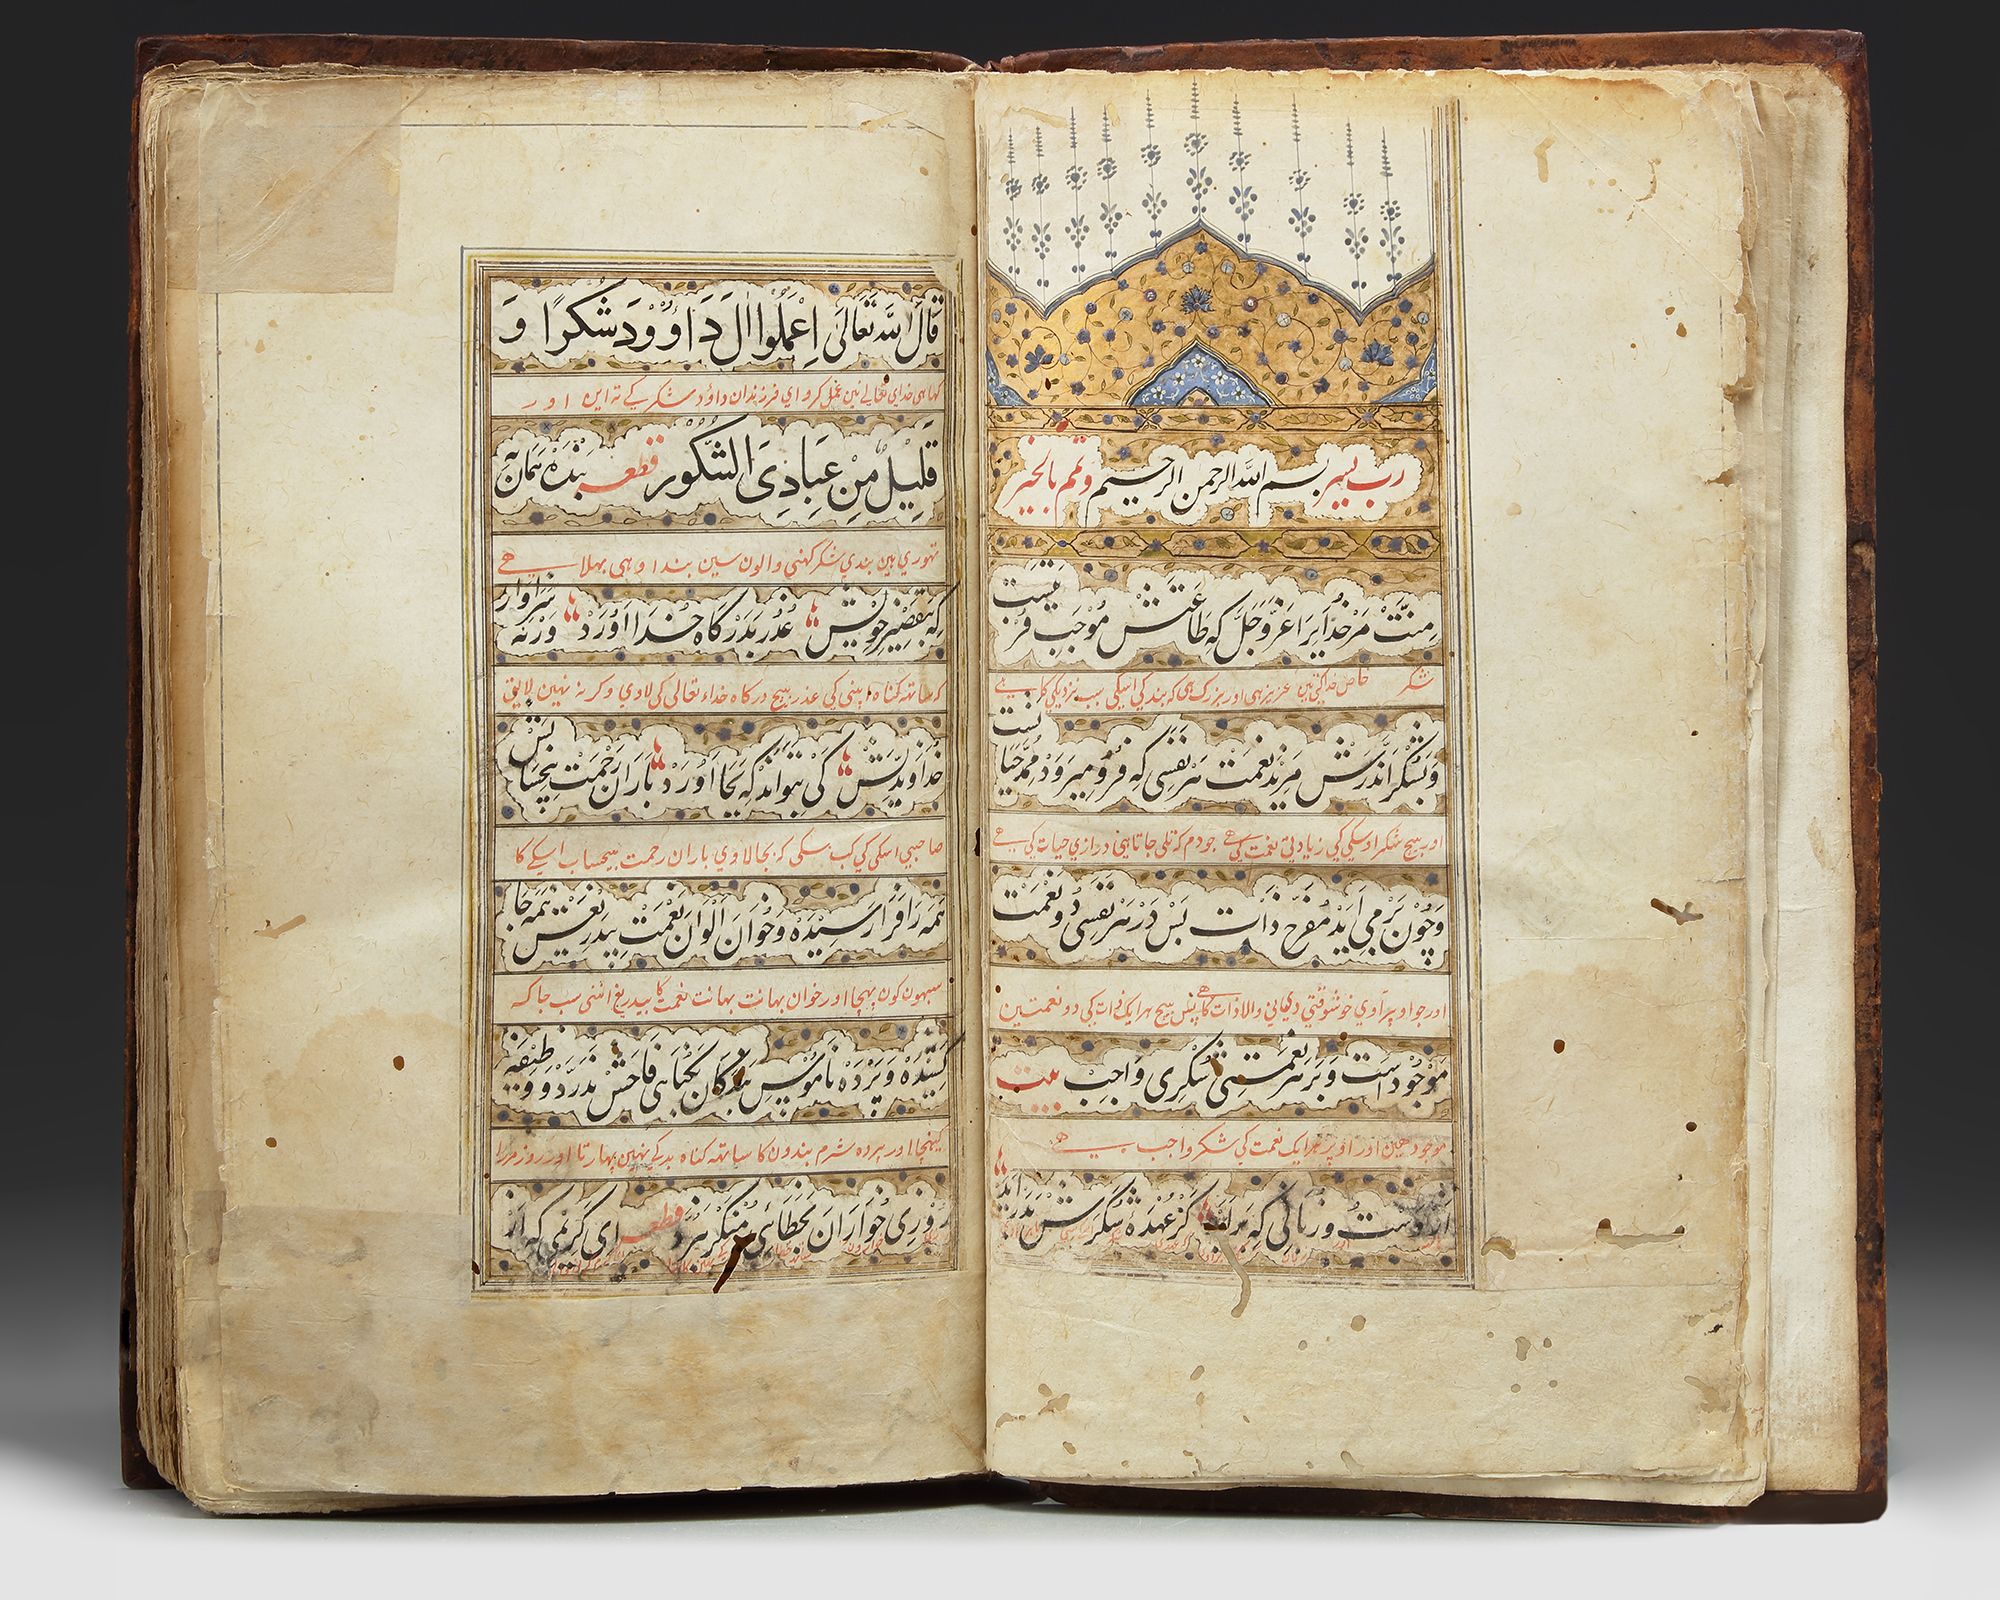 رب یسر بسم الله الرحمن الرحیم وتمم بالخیر
مِنَّتْ مَرْ خُدٰایرٰا عَزَّوَجَلَّ کِه طٰاعَتَشْ مُوْجَبِ قُرْبَتَسْتْ
شکر خاص خدا کتی ہین عزیز ہی اور بزرگ ہی کہ بندکی اسکی سبب نزدیکی کا ہے
وَبِشُکْرِ اَنْدَرَشْ مَزِیْدِ نِعْمَتْ هَرْ نَفَسِیْ کِه فُرُوْ مِیْرَوَدْ مُمِدِّ حَیٰاتَسْتْ
اور بیچ شکر اوسکی کی زیادتی نعمت کی ہے جو دم کہ تلی جاتا ہی درازی حیات کی ہے
وَچُوْنْ بَرْ مِیْ اٰیَدْ مُفَرِّحِ ذٰاتْ پَسْ دَرْ هَرْ نَفَسِیْ دُو نِعْمَتْ
اور جو اوپر آوی خوشوقتی دیی نی والا ذات کا ہے پس بیچ ہر ایک ذات کی دو نعمتین
مَوْجُودْ اَسْتْ وَبَرْ هَرْ نِعْمَتِیْ شُکْرِی وٰاجِبْ بیت
موجود ھین اور اوپر ہر ایک نعمت کی شکر واجب ہے
اَزْ دَسْتْ و زَبٰانِی کِه بَرٰایَدْ کَزْ عُهْدَهٔ شُکْرَشْ بَدَرْ اٰیَدْ
قٰالَ اللّٰه تَعَالٰی اِعْمَلُوْا اٰلَ دَاوٗوْدَ شُکْرًا وَ
کہا ہی خدای تعالی نین عمل کرو ای فرزندان داؤد شکر کے تہ این اور
قَلِیْلٌ مِنْ عِبَادِیَ الشَّکُوْر قطعہ بَنْدَهْ هَمٰانْ بِهْ
تہوری ہین بندی شکر کہنی والون سین بندا وہی بہلا ہے
کِه زِتَقْصِیْرِ خوِیْشْ عُذْرْ بَدَرْ گٰاهِ خُدٰا اٰوَرَدْ وَرْنَهْ سَزٰاوٰارِ
کہ ساتہ کناہ اپنی کی عذر بیچ درکاہ خداء تعالی کی لاوی وکرنہ نہین لایق
خُدٰاوَنْدِیَشْ کَسْ نَتَوٰانَدْ کِه بَجٰا اٰوَرَدْ بٰارٰانِ رَحْمَتِ بِیْحِسٰابَشْ
صاحبی اسکی کی کب سکی کہ بجا لاوی باران رحمت بیحساب اسکے کا
هَمَه رٰا فَرٰا رَسِیْدَهْ وَخوٰانِ اَلْوٰانِ نِعْمَتِ بِیْدَرِیْغَشْ هَمَه جٰا
سبہون کون پہچا اور خوان بہانت بہانت نعمت کا بیدریغ اتنی سب جاکہ
کَشِیْدَهْ وَپَرْدَهٔ نٰامُوْسِ بَنْدَگٰانْ بَگُنٰاهِیْ فٰاحِشْ نَدَرَدْ و وَظِیْفَهٔ
کہینچا اور پردہ شرم بندون کا ساتہہ کناہ بدکے نہین پہارتا اور روز مرا
رُوْزِیْ خوٰارٰانْ بَخَطٰایِ مُنْکَرْ نَبُرَدْ قطعہ اَیْ کَرِیْمِیْ کِه اَزْ